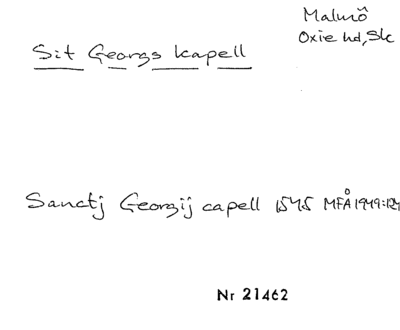 Malmö
Oxie hd, Sk
S:t Georgs kapell
Sanctj Georgij capell 1545 MFÅ 1949:124
Nr 21462